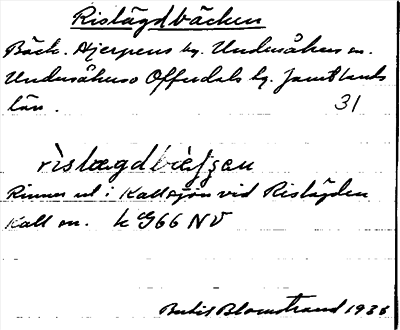 Rislägdbäcken
Bäck. Hjerpens kg. Undersåkers sn.
Undersåkers o Offerdals kg. Jämtlands
län. 31
rislægdbìeſʒen
Rinner ut i Kallsjön vid Rislägden
Kall sn. k G66 NV
Bertil Blomstrand 1936